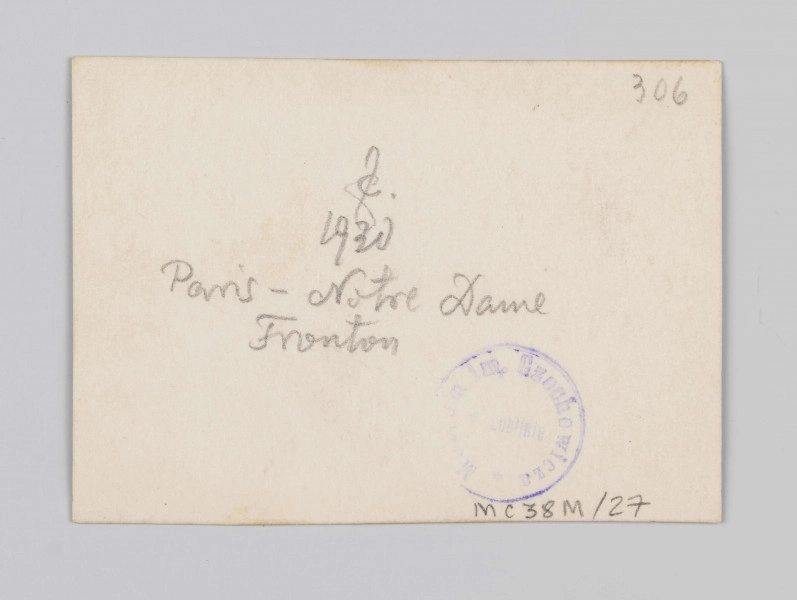 306
1930
Paris - Notre Dame
Fronton
im. Czechowicza
MC38M/27